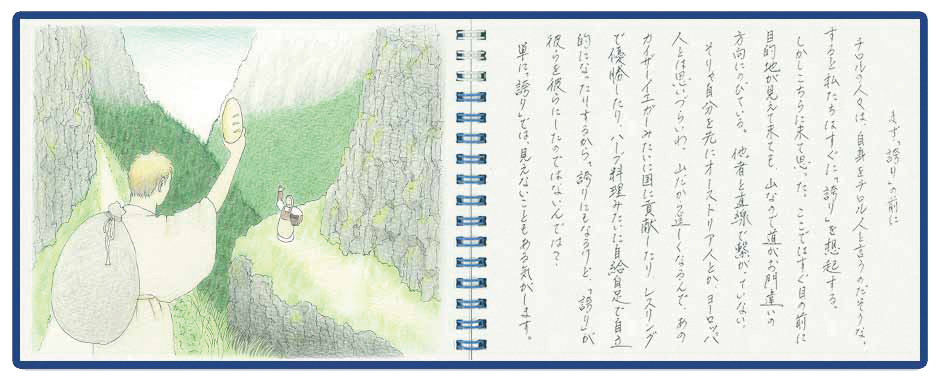 まず、"誇り"の前に
チロルの人々は、自身をチロル人と言うのだそうな。
すると私たちはすぐに"誇り"を想起する。
しかしこちらに来て思った。ここではすぐ目の前に
目的地が見えて来ても、山なので道がお門違いの
方向にのびている。他者と直線で繋がっていない。
そりゃ自分を先にオーストリア人とか、ヨーロッパ
人とは思いづらいわ。山だから逞しくなるんで、あの
カイザーイエガーみたいに国に貢献したり、レスリング
で優勝したり、ハーブ料理みたいな自給自足で自立
的になったりするから、"誇り"にもなるけど、"誇り"が
彼らを彼らにしたのではないんでは?
単に"誇り"では、見えないこともある気がします。